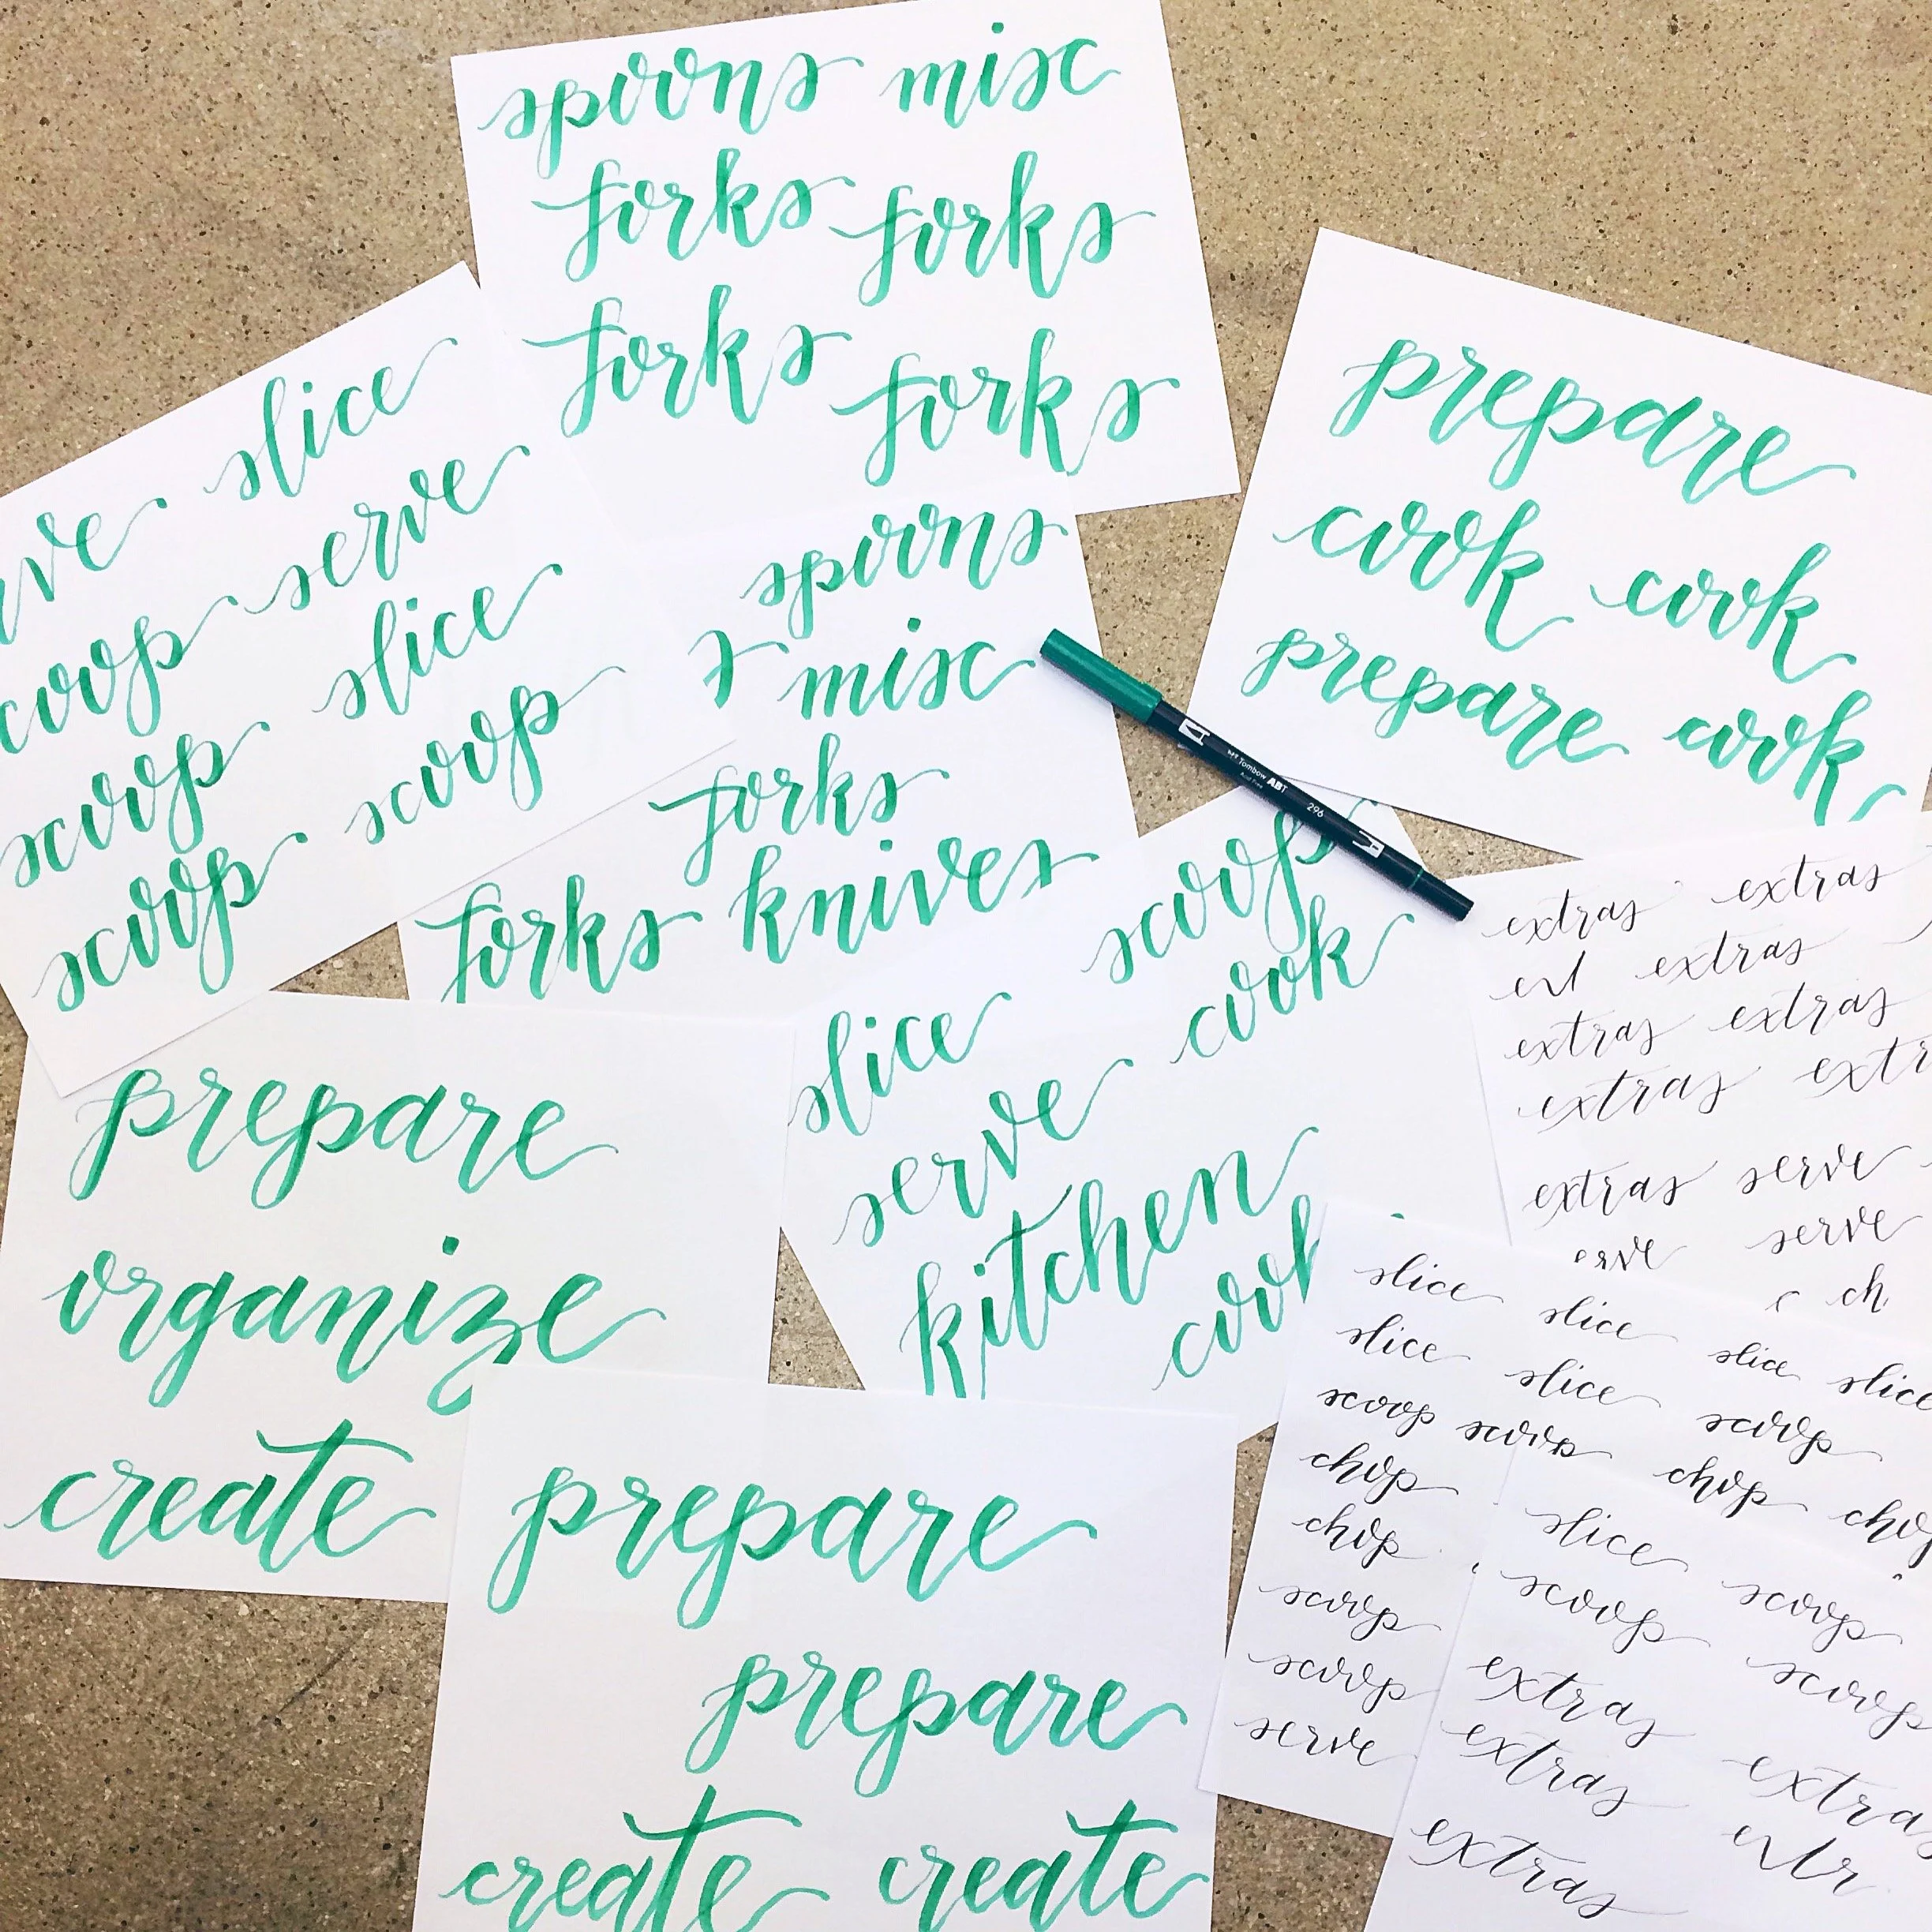 spoons misc
forks forks
forks forks
slice
serve
slice
scoop
scoop
scoop
prepare
cook cook
prepare cook
spoons
misc
forks
forks knives
Tombow ABT
296
scoop
slice cook
serve
kitchen
prepare
organize
create
prepare
prepare
create create
extras extras
extras
extras extras
extras
extras serve
serve
slice slice slice slice
slice slice
scoop scoop
chop chop
chop
scoop
scoop
serve
slice
scoop scoop
extras scoop
extras
extras